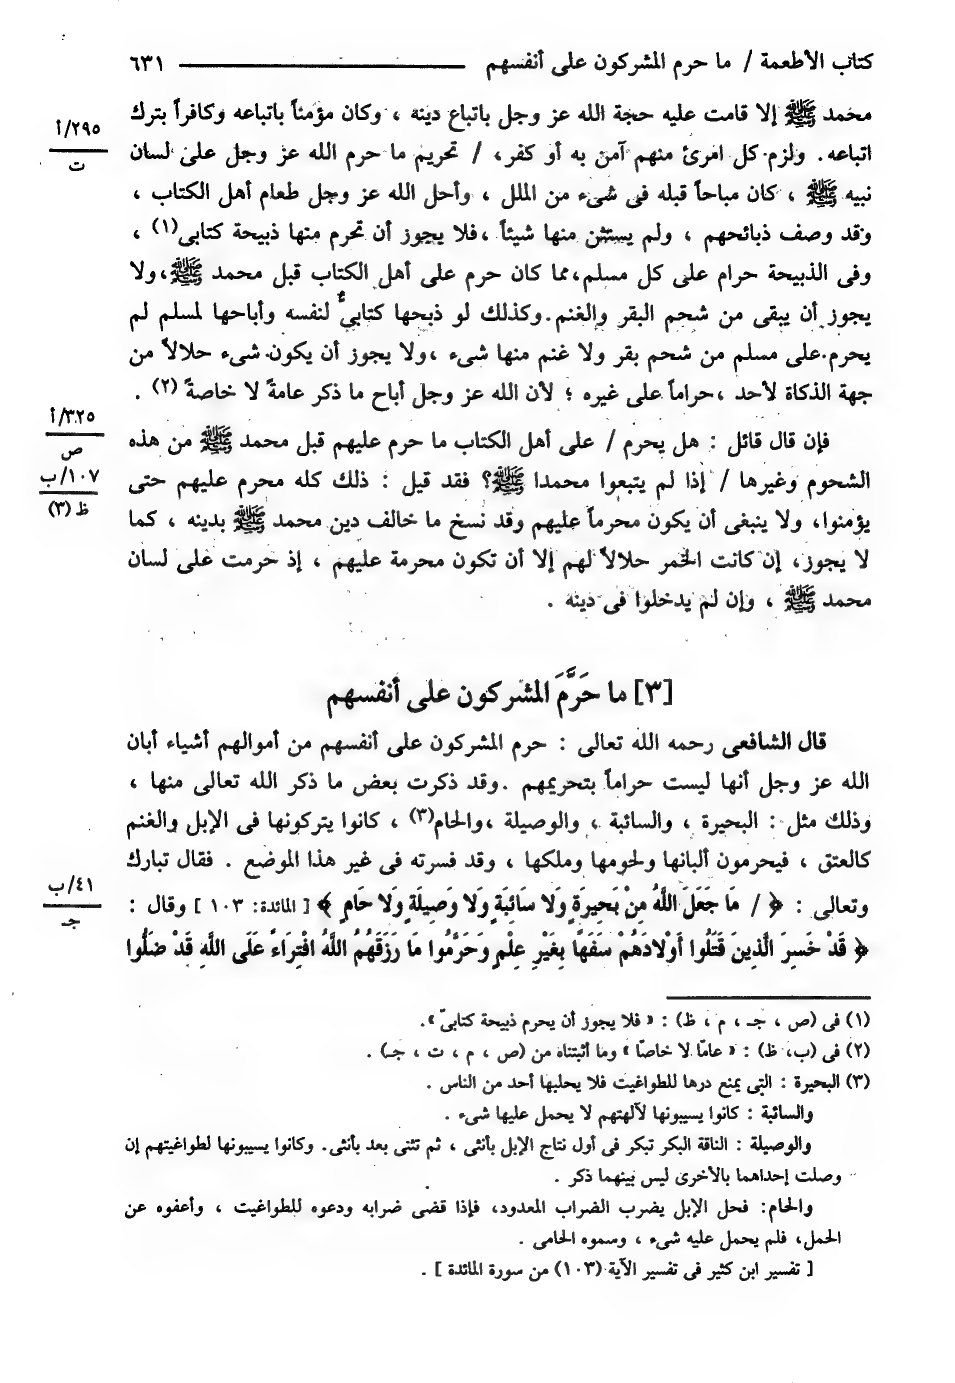 كتاب الأطعمة / ما حرم المشركون على أنفسهم ٦٣١
محمد ﷺ إلا قامت عليه حجة الله عز وجل باتباع دينه ، وكان مؤمناً باتباعه وكافراً بترك
٢٩٥/أ
ت
اتباعه. ولزم كل امرئ منهم آمن به أو كفر، / تحريم ما حرم الله عز وجل على لسان
نبيه ﷺ ، كان مباحاً قبله فى شىء من الملل ، وأحل الله عز وجل طعام أهل الكتاب ،
وقد وصف ذبائحهم ، ولم يستثن منها شيئاً ،فلا يجوز أن تحرم منها ذبيحة كتابى(١) ،
وفى الذبيحة حرام على كل مسلم،مما كان حرم على أهل الكتاب قبل محمد ﷺ،ولا
يجوز أن يبقى من شحم البقر والغنم.وكذلك لو ذبحها كتابىٌّ لنفسه وأباحها لمسلم لم
يحرم على مسلم من شحم بقر ولا غنم منها شىء ،ولا يجوز أن يكون شىء حلالاً من
جهة الذكاة لأحد ،حراماً على غيره ؛ لأن الله عز وجل أباح ما ذكر عامةً لا خاصةً (٢) .
٣٢٥/أ
ص
فإن قال قائل : هل يحرم / على أهل الكتاب ما حرم عليهم قبل محمد ﷺ من هذه
١٠٧/ب
ظ (٣)
الشحوم وغيرها / إذا لم يتبعوا محمدا ﷺ؟ فقد قيل : ذلك كله محرم عليهم حتى
يؤمنوا، ولا ينبغى أن يكون محرماً عليهم وقد نسخ ما خالف دين محمد ﷺ بدينه ، كما
لا يجوز، إن كانت الخمر حلالاً لهم إلا أن تكون محرمة عليهم ، إذ حرمت على لسان
محمد ﷺ ، وإن لم يدخلوا فى دينه .
[٣] ما حَرَّمَ المشركون على أنفسهم
قال الشافعى رحمه الله تعالى : حرم المشركون على أنفسهم من أموالهم أشياء أبان
الله عز وجل أنها ليست حراماً بتحريمهم .وقد ذكرت بعض ما ذكر الله تعالى منها ،
وذلك مثل : البحيرة ، والسائبة ، والوصيلة ،والحام(٣) ، كانوا يتركونها فى الإبل والغنم
كالعتق ، فيحرمون ألبانها ولحومها وملكها ، وقد فسرته فى غير هذا الموضع . فقال تبارك
٤١/ب
جـ
وتعالى : ﴿ / مَا جَعَلَ اللَّهُ مِنْ بَحِيرَةٍ وَلَا سَائِبَةٍ وَلَا وَصِيلَةٍ وَلَا حَامٍ ﴾ [ المائدة: ١٠٣ ] وقال :
﴿ قَدْ خَسِرَ الَّذِينَ قَتَلُوا أَوْلادَهُمْ سَفَهًا بِغَيْرِ عِلْمٍ وَحَرَّمُوا مَا رَزَقَهُمُ اللَّهُ افْتِرَاءً عَلَى اللَّهِ قَدْ ضَلُّوا
(١) فى (ص ، جـ ، م ، ظ) : « فلا يجوز أن يحرم ذبيحة كتابىّ ».
(٢) فى (ب، ظ) : « عامًا لا خاصًا » وما أثبتناه من (ص ، م ، ت ، جـ) .
(٣) البحيرة : التى يمنع درها للطواغيت فلا يحلبها أحد من الناس .
والسائبة : كانوا يسيبونها لآلهتهم لا يحمل عليها شىء .
والوصيلة : الناقة البكر تبكر فى أول نتاج الإبل بأنثى ، ثم تثنى بعد بأنثى. وكانوا يسيبونها لطواغيتهم إن
وصلت إحداهما بالأخرى ليس بينهما ذكر .
والحام: فحل الإبل يضرب الضراب المعدود، فإذا قضى ضرابه ودعوه للطواغيت ، وأعفوه عن
الحمل، فلم يحمل عليه شىء ، وسموه الحامى .
[ تفسير ابن كثير فى تفسير الآية (١٠٣) من سورة المائدة ] .